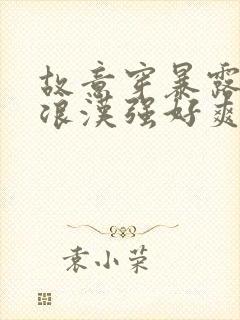 故意穿暴露
浪漢强好爽
袁小荣